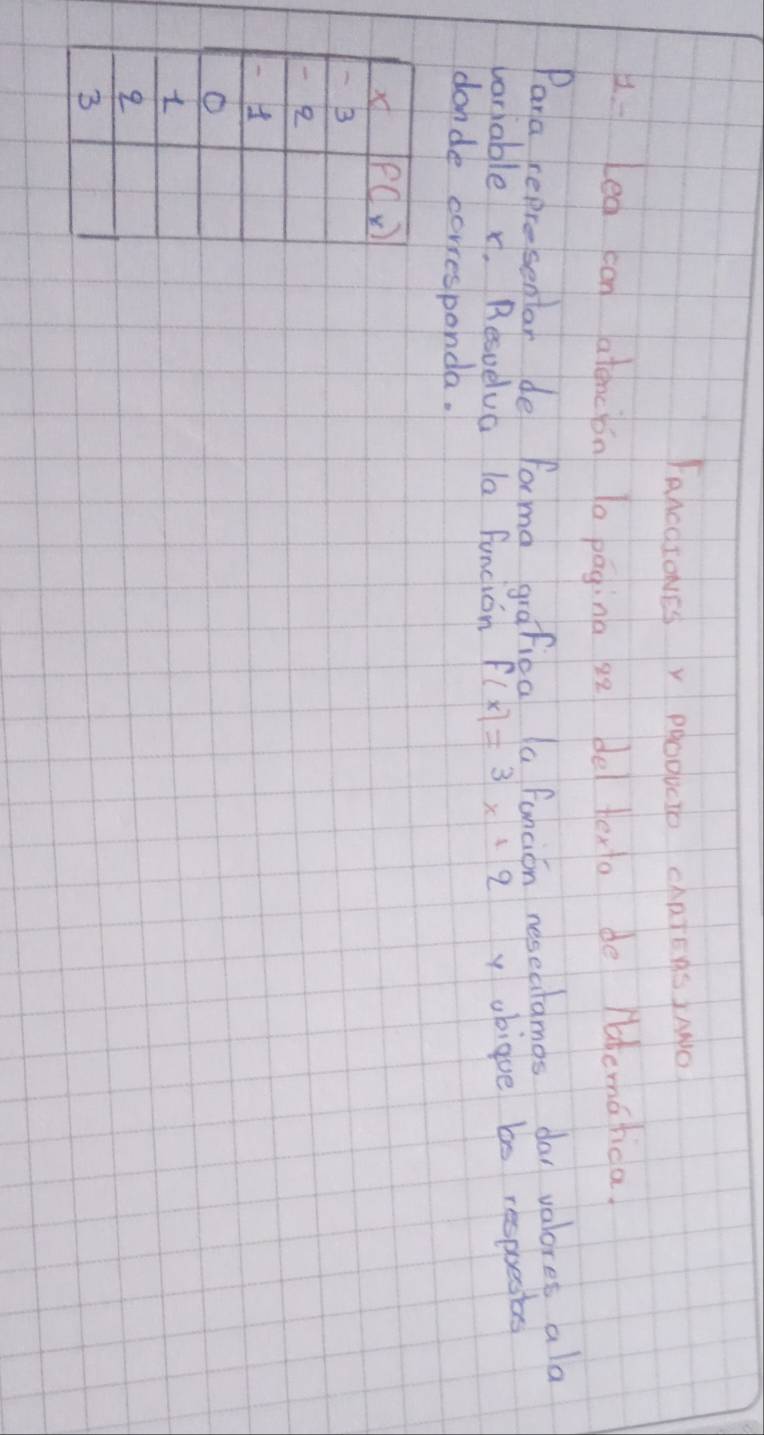 FANCCIONES Y PRODUCTO CARTERSIANO
1.- Lea con atención la página 22 del texto de Matemática.
Para representar de forma gráfica la función nesecitamos dar valores a la
variable x. Resuelva la función f(x) = 3x + 2 y ubique las respuestas
donde corresponda.
x P(x)
-3
-2
-1
0
1
2
3